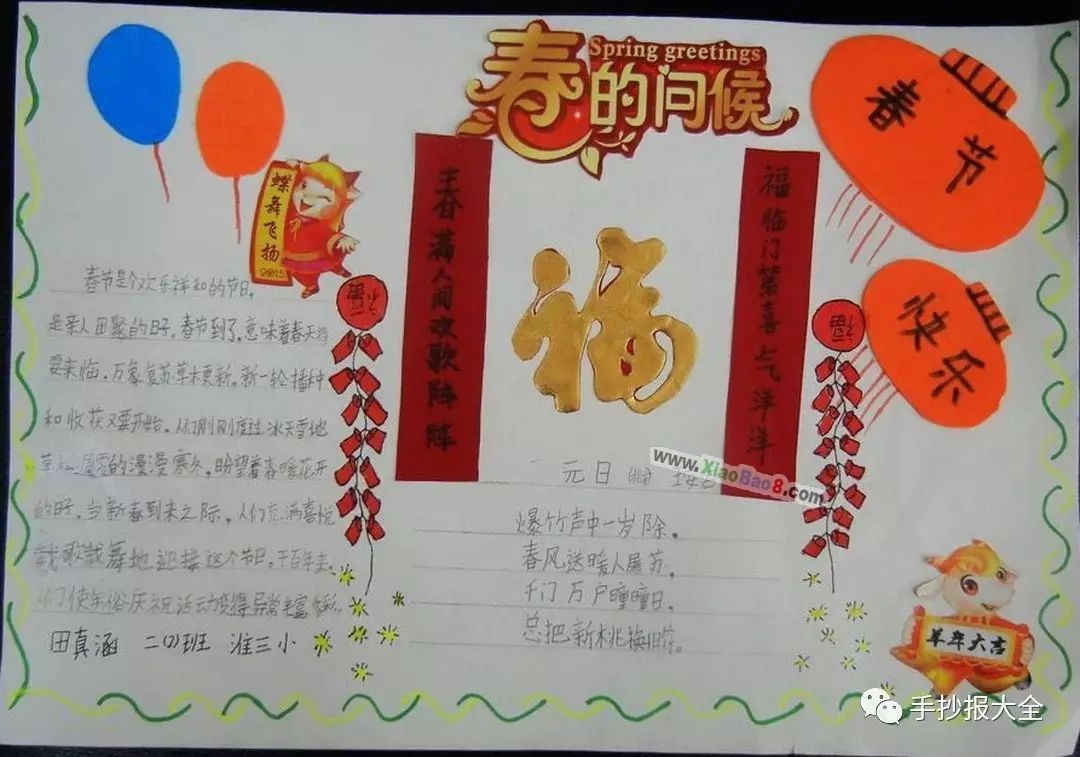 Spring greetings
春的问候
春节
快乐
蝶舞飞扬
2015
春满人间欢歌阵阵
福临门第喜气洋洋
福
福
春节是个欢乐祥和的节日。
是亲人团聚的日子。春节到了,意味着春天将
要来临,万象复苏草木更新,新一轮播种
和收获又要开始。人们刚刚度过冰天雪地
草木凋零的漫漫寒冬,盼望着春暖花开
的日子,当新春到来之际,人们充满喜悦
载歌载舞地迎接这个节日。千百年来,
人们使年俗庆祝活动变得异常丰富多彩。
田真涵 二(1)班 淮三小
元日
爆竹声中一岁除,
春风送暖入屠苏。
千门万户曈曈日,
总把新桃换旧符。
www.XiaoBao8.com
羊年大吉
手抄报大全